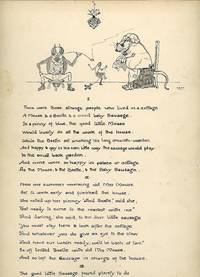 I
There were three strange people who lived in a cottage
A Mouse & a Beetle & a cruel baby Sausage.
In a pinny of blue, the good little Mouse
Would busily do all the work of the house.
While the Beetle sat smoking his long
Happy & gay in his own little way, the Sausage would play
In the small back garden.
And some were as happy in palace or cottage
As the Mouse, & the Beetle, & the Baby Sausage.
II
Now one summer morning did Mrs Mouse
Get up early and
She called up her "Kind Beetle" said she,
"And darling", she said, to the dear little sausage.
"You must stay here & look after the cottage
And whatever you do give an eye to the stew
And have our lunch ready, we'll be back at Two."
So off trotted Beetle with old Mrs Mouse.
And so left the Sausage in charge of the house.
III
The good little Sausage found plenty to do